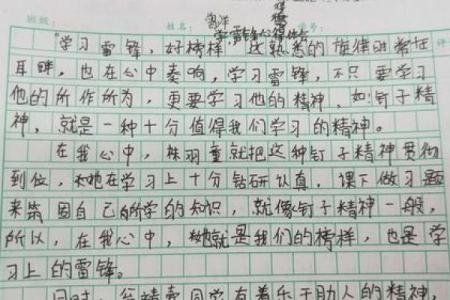 班级: 姓名: 学号: 评
学雷锋心得体会
"学习雷锋,好榜样",这熟悉的旋律时常在
耳畔,也在心中奏响,学习雷锋,不只要学习
他的所作所为,更要学习他的精神,如:钉子精
神,就是一种十分值得我们学习的精神。
在我心中,林羽童就把这种钉子精神贯彻
到位,她在学习上十分钻研认真,课下做习题
来巩固自己所学的知识,就像钉子精神一般,
所以,在我心中,她就是我们的榜样,也是学
习上的雷锋。
同时,同学有着乐于助人的精神,